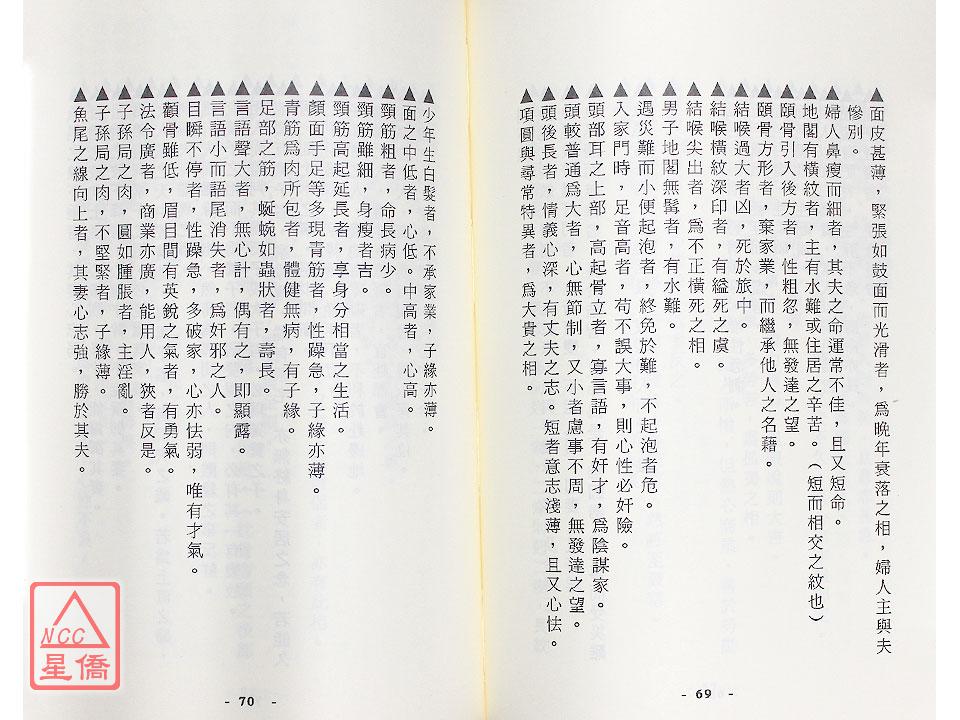 ▲面皮甚薄，緊張如鼓面而光滑者，爲晚年衰落之相，婦人主與夫
慘別。
▲婦人鼻瘦而細者，其夫之命運常不佳，且又短命。
▲地閣有橫紋者，主有水難或住居之辛苦。（短而相交之紋也）
▲頤骨引入後方者，性粗忽，無發達之望。
▲頤骨方形者，棄家業，而繼承他人之名藉。
▲結喉過大者凶，死於旅中。
▲結喉橫紋深印者，有縊死之虞。
▲結喉尖出者，爲不正橫死之相。
▲男子地閣無髯者，有水難。
▲遇災難而小便起泡者，終免於難，不起泡者危。
▲入家門時，足音高者，苟不誤大事，則心性必奸險。
▲頭部耳之上部，高起骨立者，寡言語，有奸才，爲陰謀家。
▲頭較普通爲大者，心無節制，又小者慮事不周，無發達之望。
▲頭後長者，情義心深，有丈夫之志。短者意志淺薄，且又心怯。
▲項圓與尋常特異者，爲大貴之相。
- 69 -
▲少年生白髮者，不承家業，子緣亦薄。
▲面之中低者，心低。中高者，心高。
▲頸筋粗者，命長病少。
▲頸筋雖細，身瘦者吉。
▲頸筋高起延長者，享身分相當之生活。
▲顏面手足等多現青筋者，性躁急，子緣亦薄。
▲青筋爲肉所包者，體健無病，有子緣。
▲足部之筋，蜒蜿如蟲狀者，壽長。
▲言語聲大者，無心計，偶有之，即顯露。
▲言語小而語尾消失者，爲奸邪之人。
▲目瞬不停者，性躁急，多破家，心亦怯弱，唯有才氣。
▲顴骨雖低，眉目間有英銳之氣者，有勇氣。
▲法令廣者，商業亦廣，能用人，狹者反是。
▲子孫局之肉，圓如腫脹者，主淫亂。
▲子孫局之肉，不堅緊者，子緣薄。
▲魚尾之線向上者，其妻心志強，勝於其夫。
- 70 -
NCC
星僑